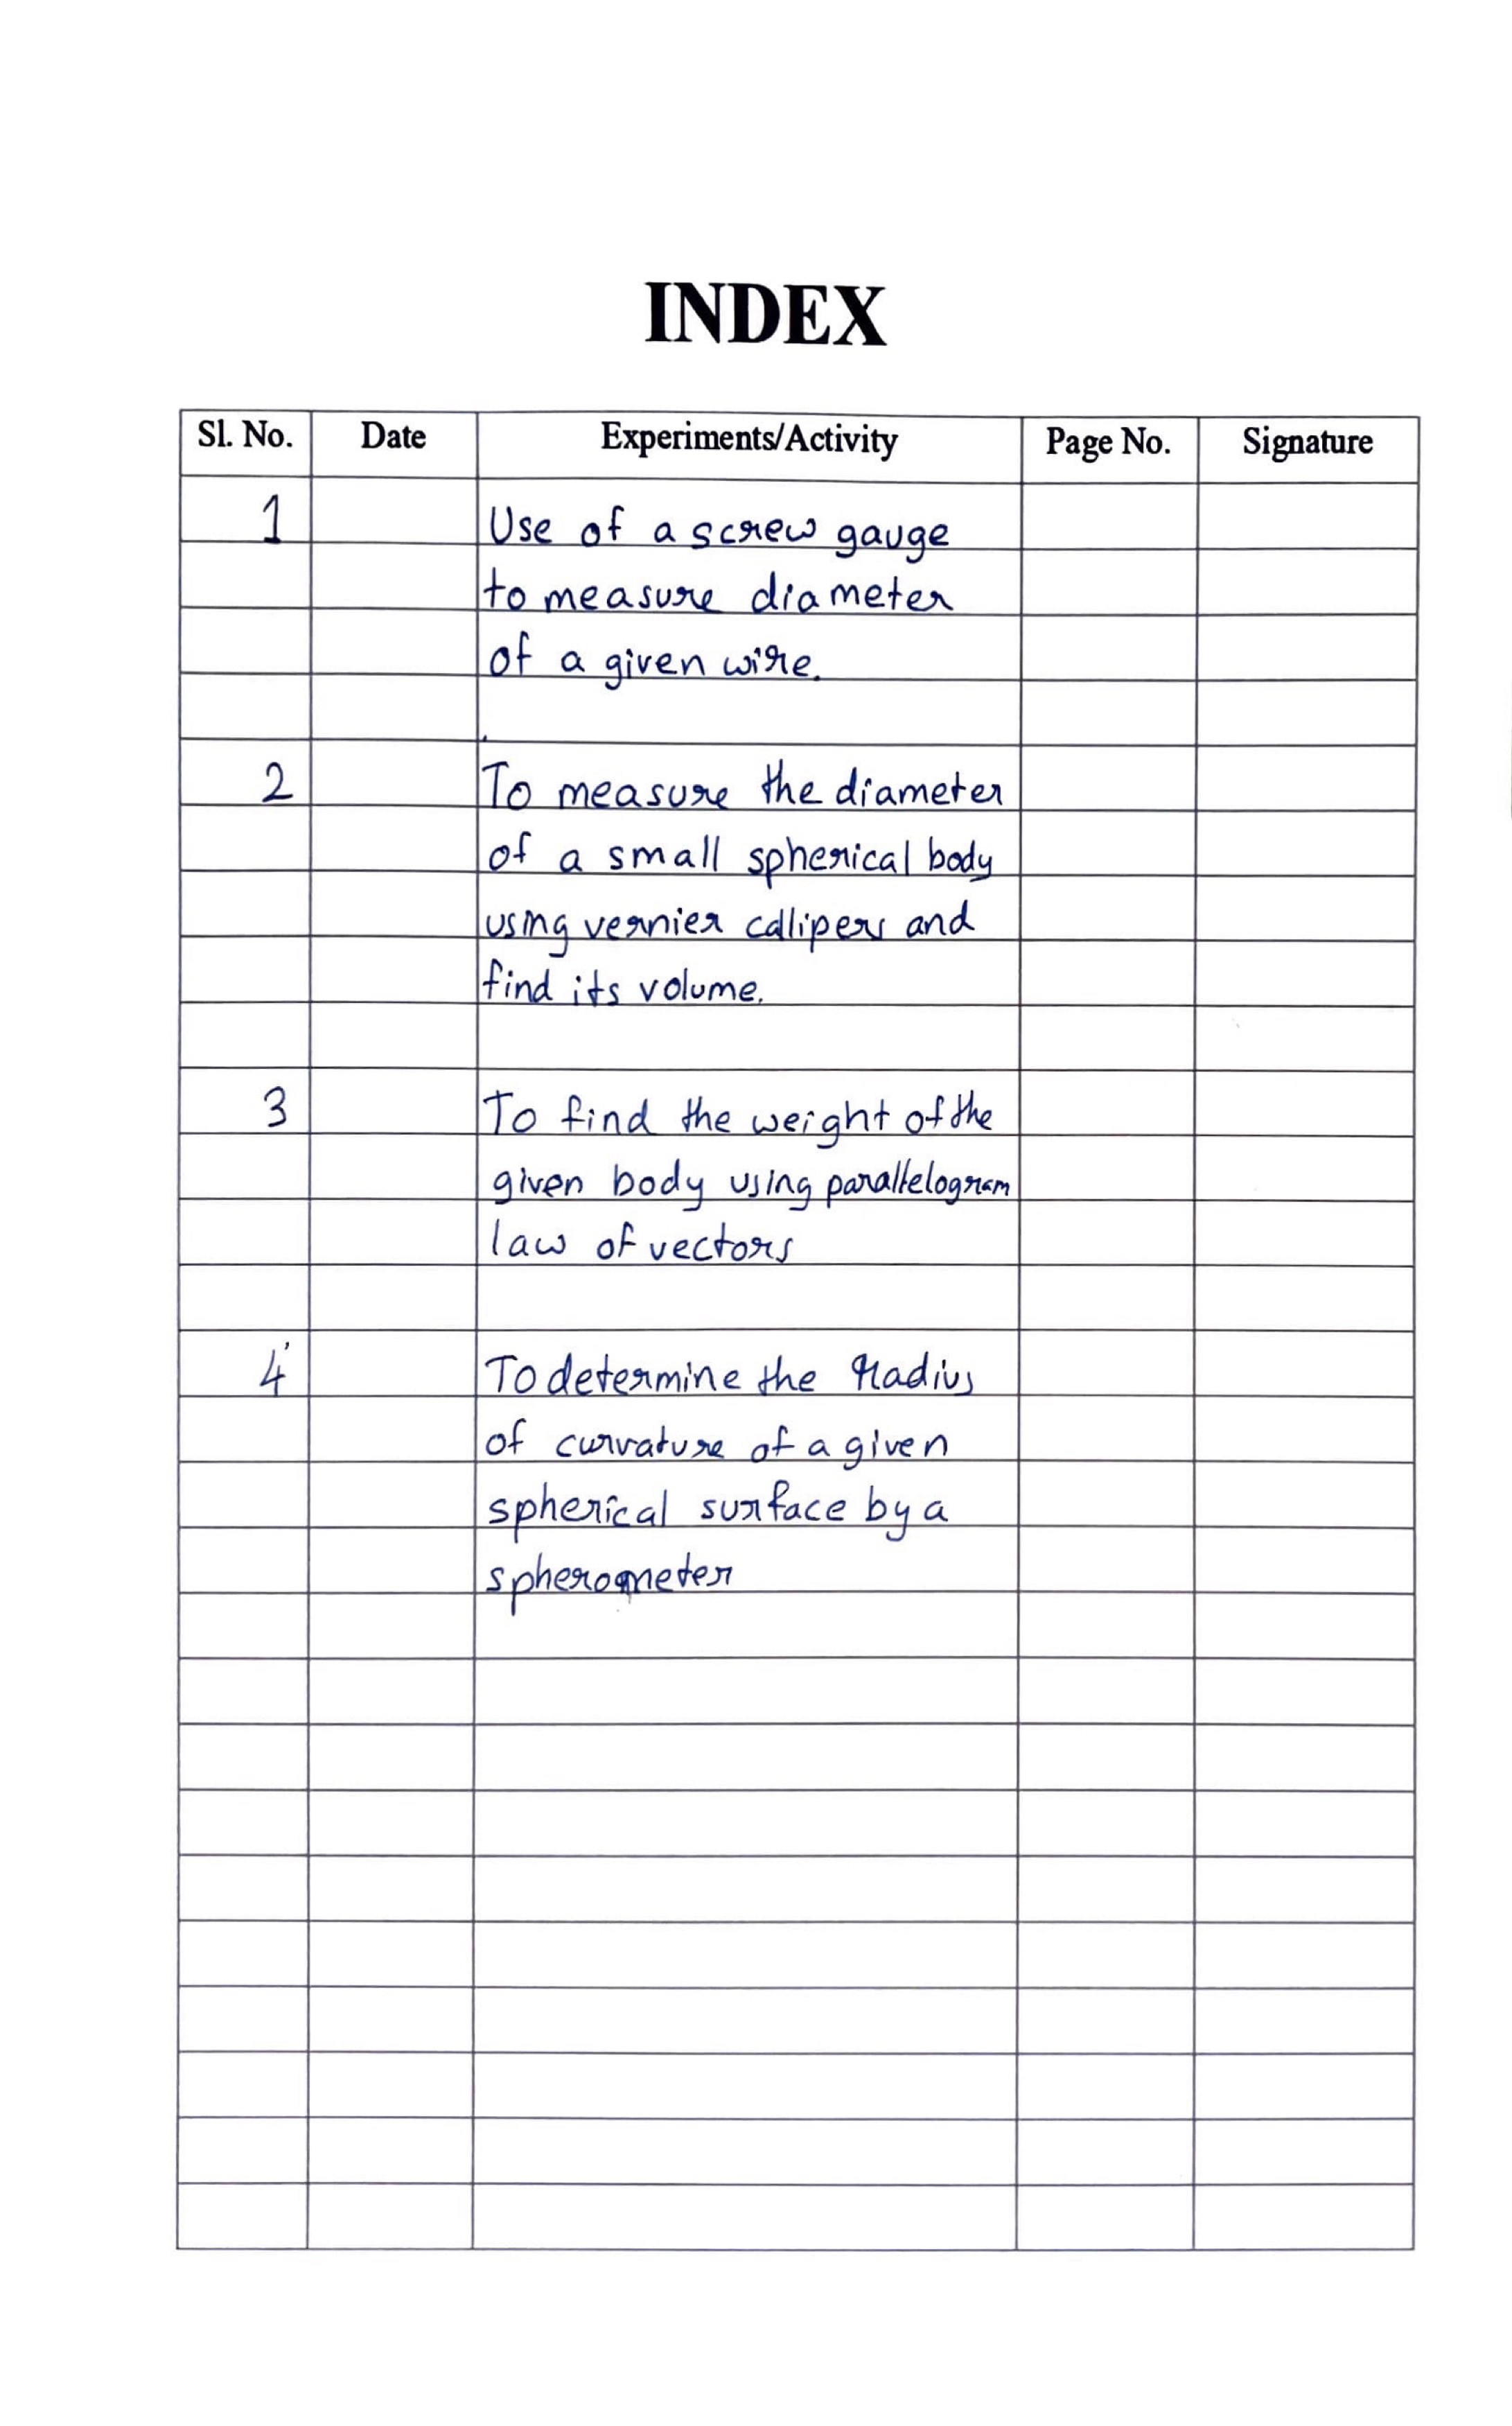 INDEX
Sl. No. Date Experiments/Activity Page No. Signature
1 Use of a screw gauge
to measure diameter
of a given wire.
2 To measure the diameter
of a small spherical body
using vernier callipers and
find its volume.
3 To find the weight of the
given body using parallelogram
law of vectors
4 To determine the Radius
of curvature of a given
spherical surface by a
spherometer